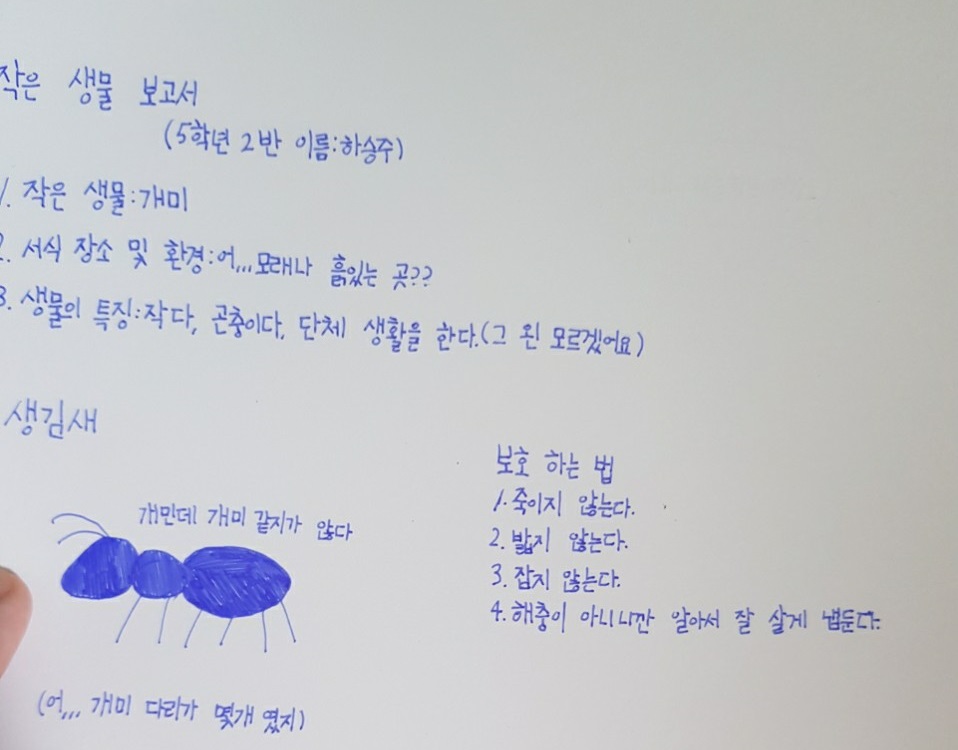 작은 생물 보고서
(5학년 2반 이름:하승주)
1. 작은 생물:개미
2. 서식 장소 및 환경:어,,,모래나 흙있는 곳??
3. 생물의 특징:작다, 곤충이다, 단체 생활을 한다.(그 왼 모르겠어요)
생김새
개민데 개미 같지가 않다
(어,,, 개미 다리가 몇개 였지)
보호 하는 법
1. 죽이지 않는다.
2. 밟지 않는다.
3. 잡지 않는다.
4. 해충이 아니니깐 알아서 잘 살게 냅둔다.